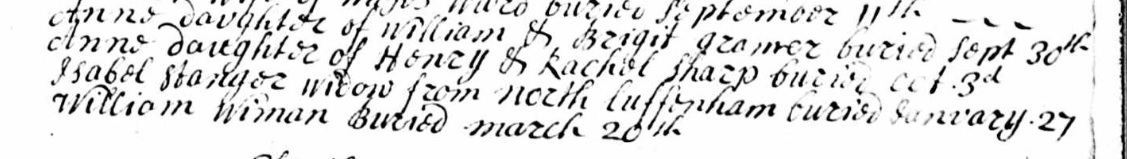 of ward buried september 11th
Anne daughter of William & Brigit buried sept 30th
Anne daughter of Henry & Rachel Sharp buried oct. 3d
Isabel Stanger widow from north luffenham buried January. 27
William Wiman Buried march 20th